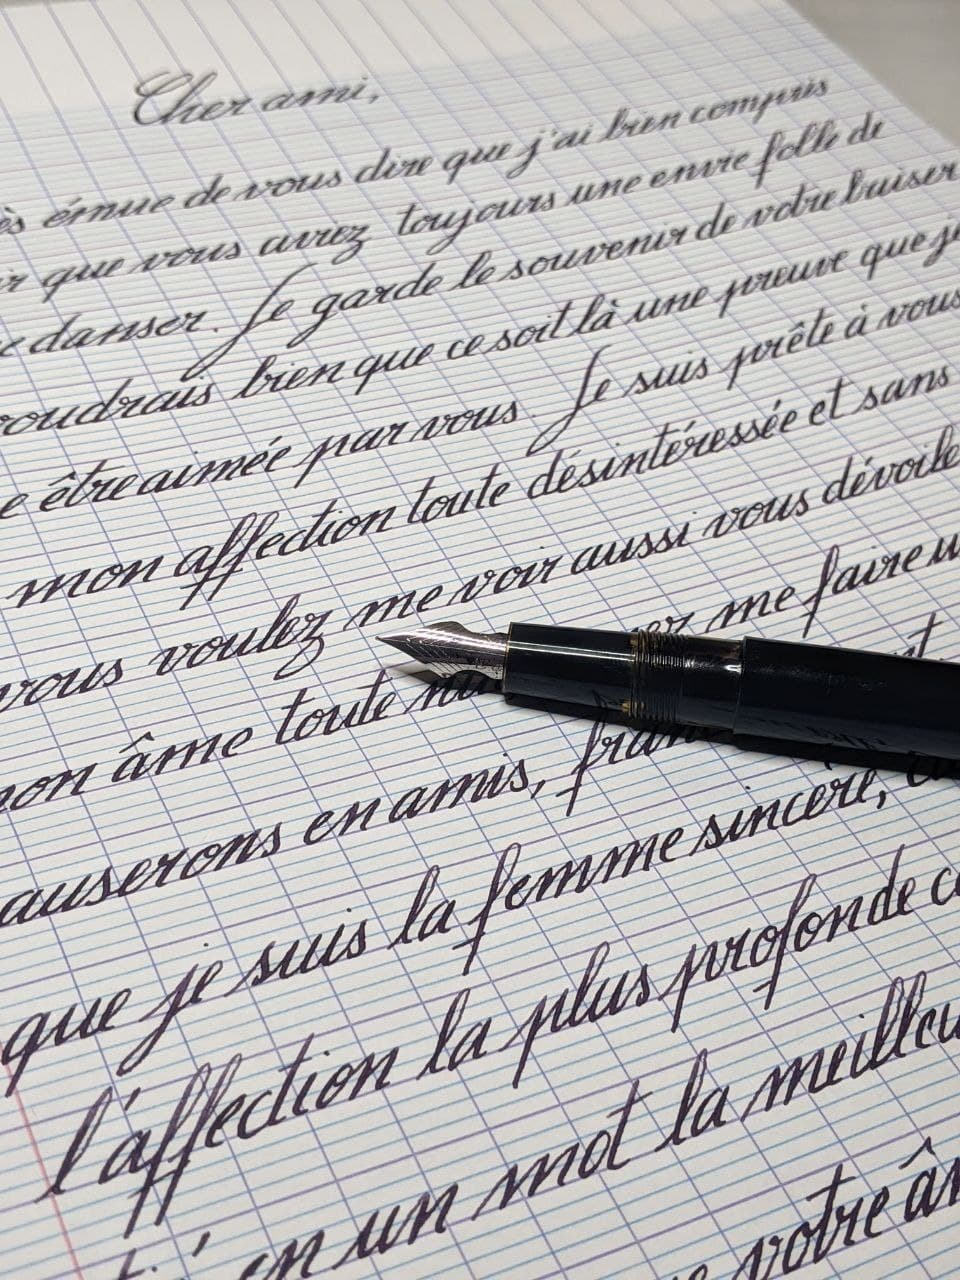 Cher ami,
ès émue de vous dire que j'ai bien compris
ir que vous aviez toujours une envie folle de
e danser. Je garde le souvenir de votre baiser
voudrais bien que ce soit là une preuve que je
e être aimée par vous. Je suis prête à vous
mon affection toute désintéressée et sans
vous voulez me voir aussi vous dévoile
mon âme toute nu ez me faire u
auserons en amis, fran t
que je suis la femme sincère,
l'affection la plus profonde co
en un mot la meilleu
votre âm